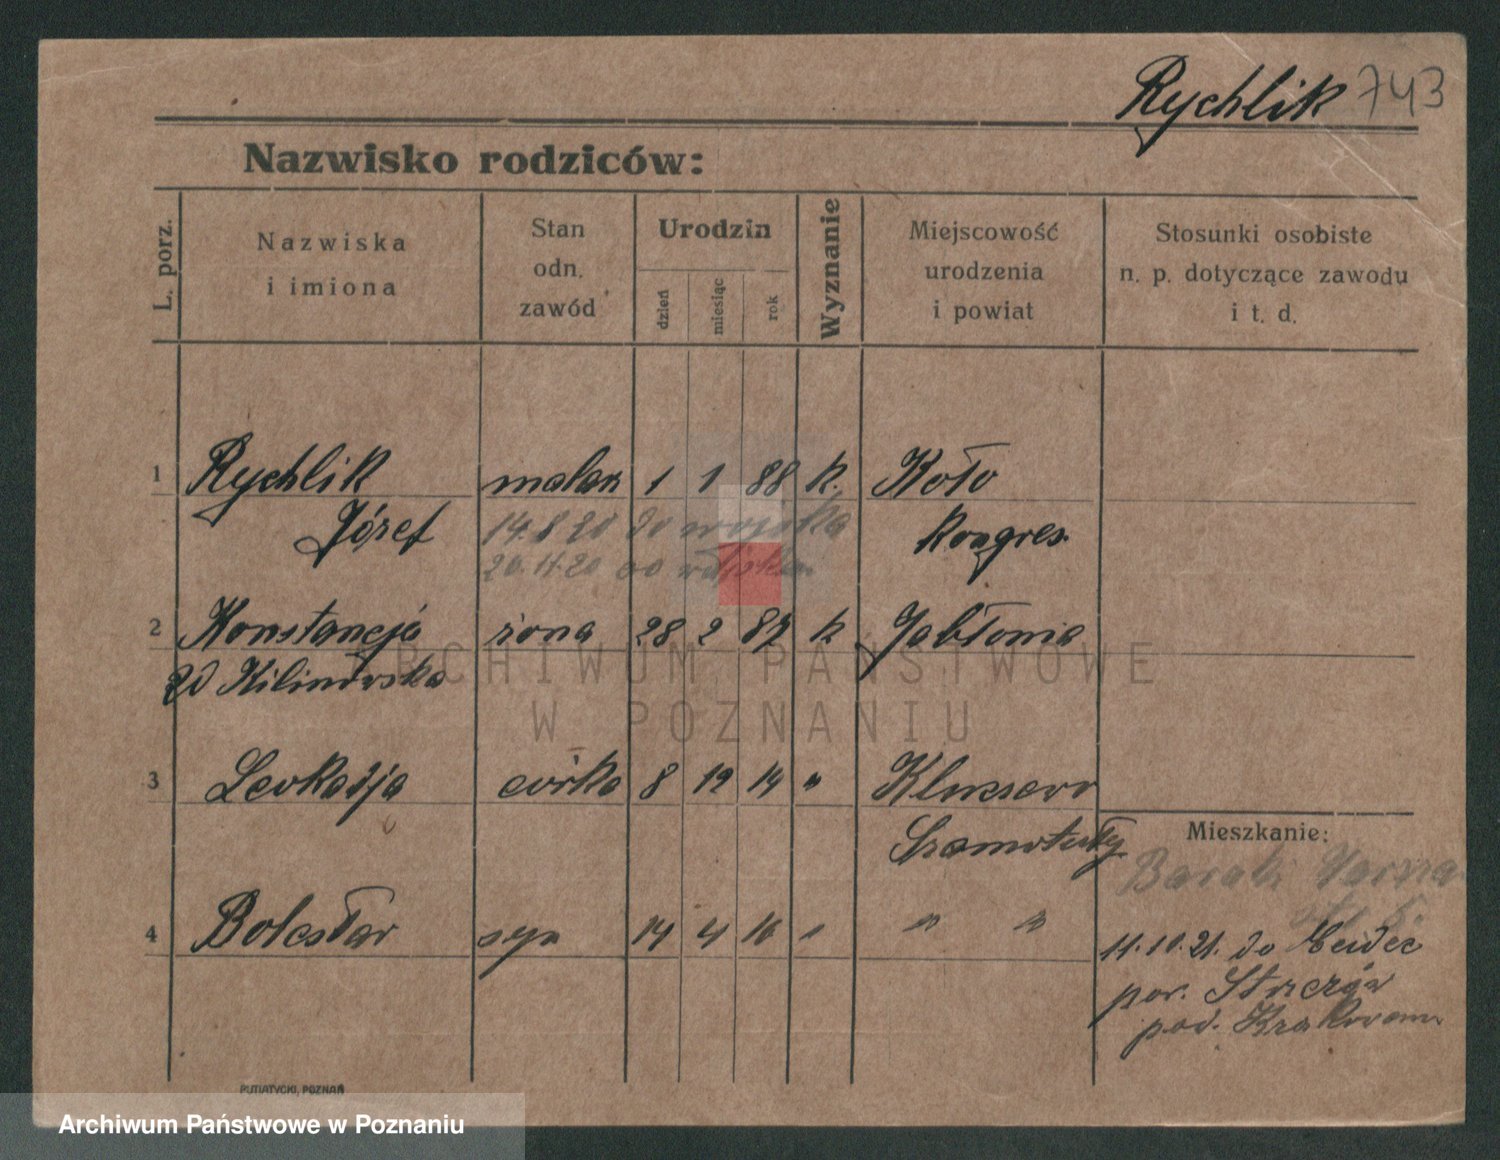 Rychlik 743
Nazwisko rodziców:
L. porz.
Nazwiska
i imiona
Stan
odn.
zawód
Urodzin
dzień
miesiąc
rok
Wyznanie
Miejscowość
urodzenia
i powiat
Stosunki osobiste
n. p. dotyczące zawodu
i t. d.
1 Rychlik malarz 1 1 88 k. Koło
Józef 14.8.20 do wojska Kongres.
20.11.20 wojska
2 Konstancja żona 28 2 87 k Jabłonia
zd Kilinowska
3 Leokadja córka 8 12 14 "
Szamotuły
Mieszkanie:
Barak
4 Bolesław syn 14 4 16 " " "
11.10.21. do
pow.
pod. Krakowem
PUTIATYCKI, POZNAŃ
ARCHIWUM PAŃSTWOWE
W POZNANIU
Archiwum Państwowe w Poznaniu